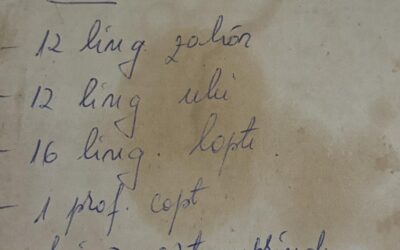 - 12 ling. zahăr
- 12 ling ulei
- 16 ling. lapte
- 1 praf. copt